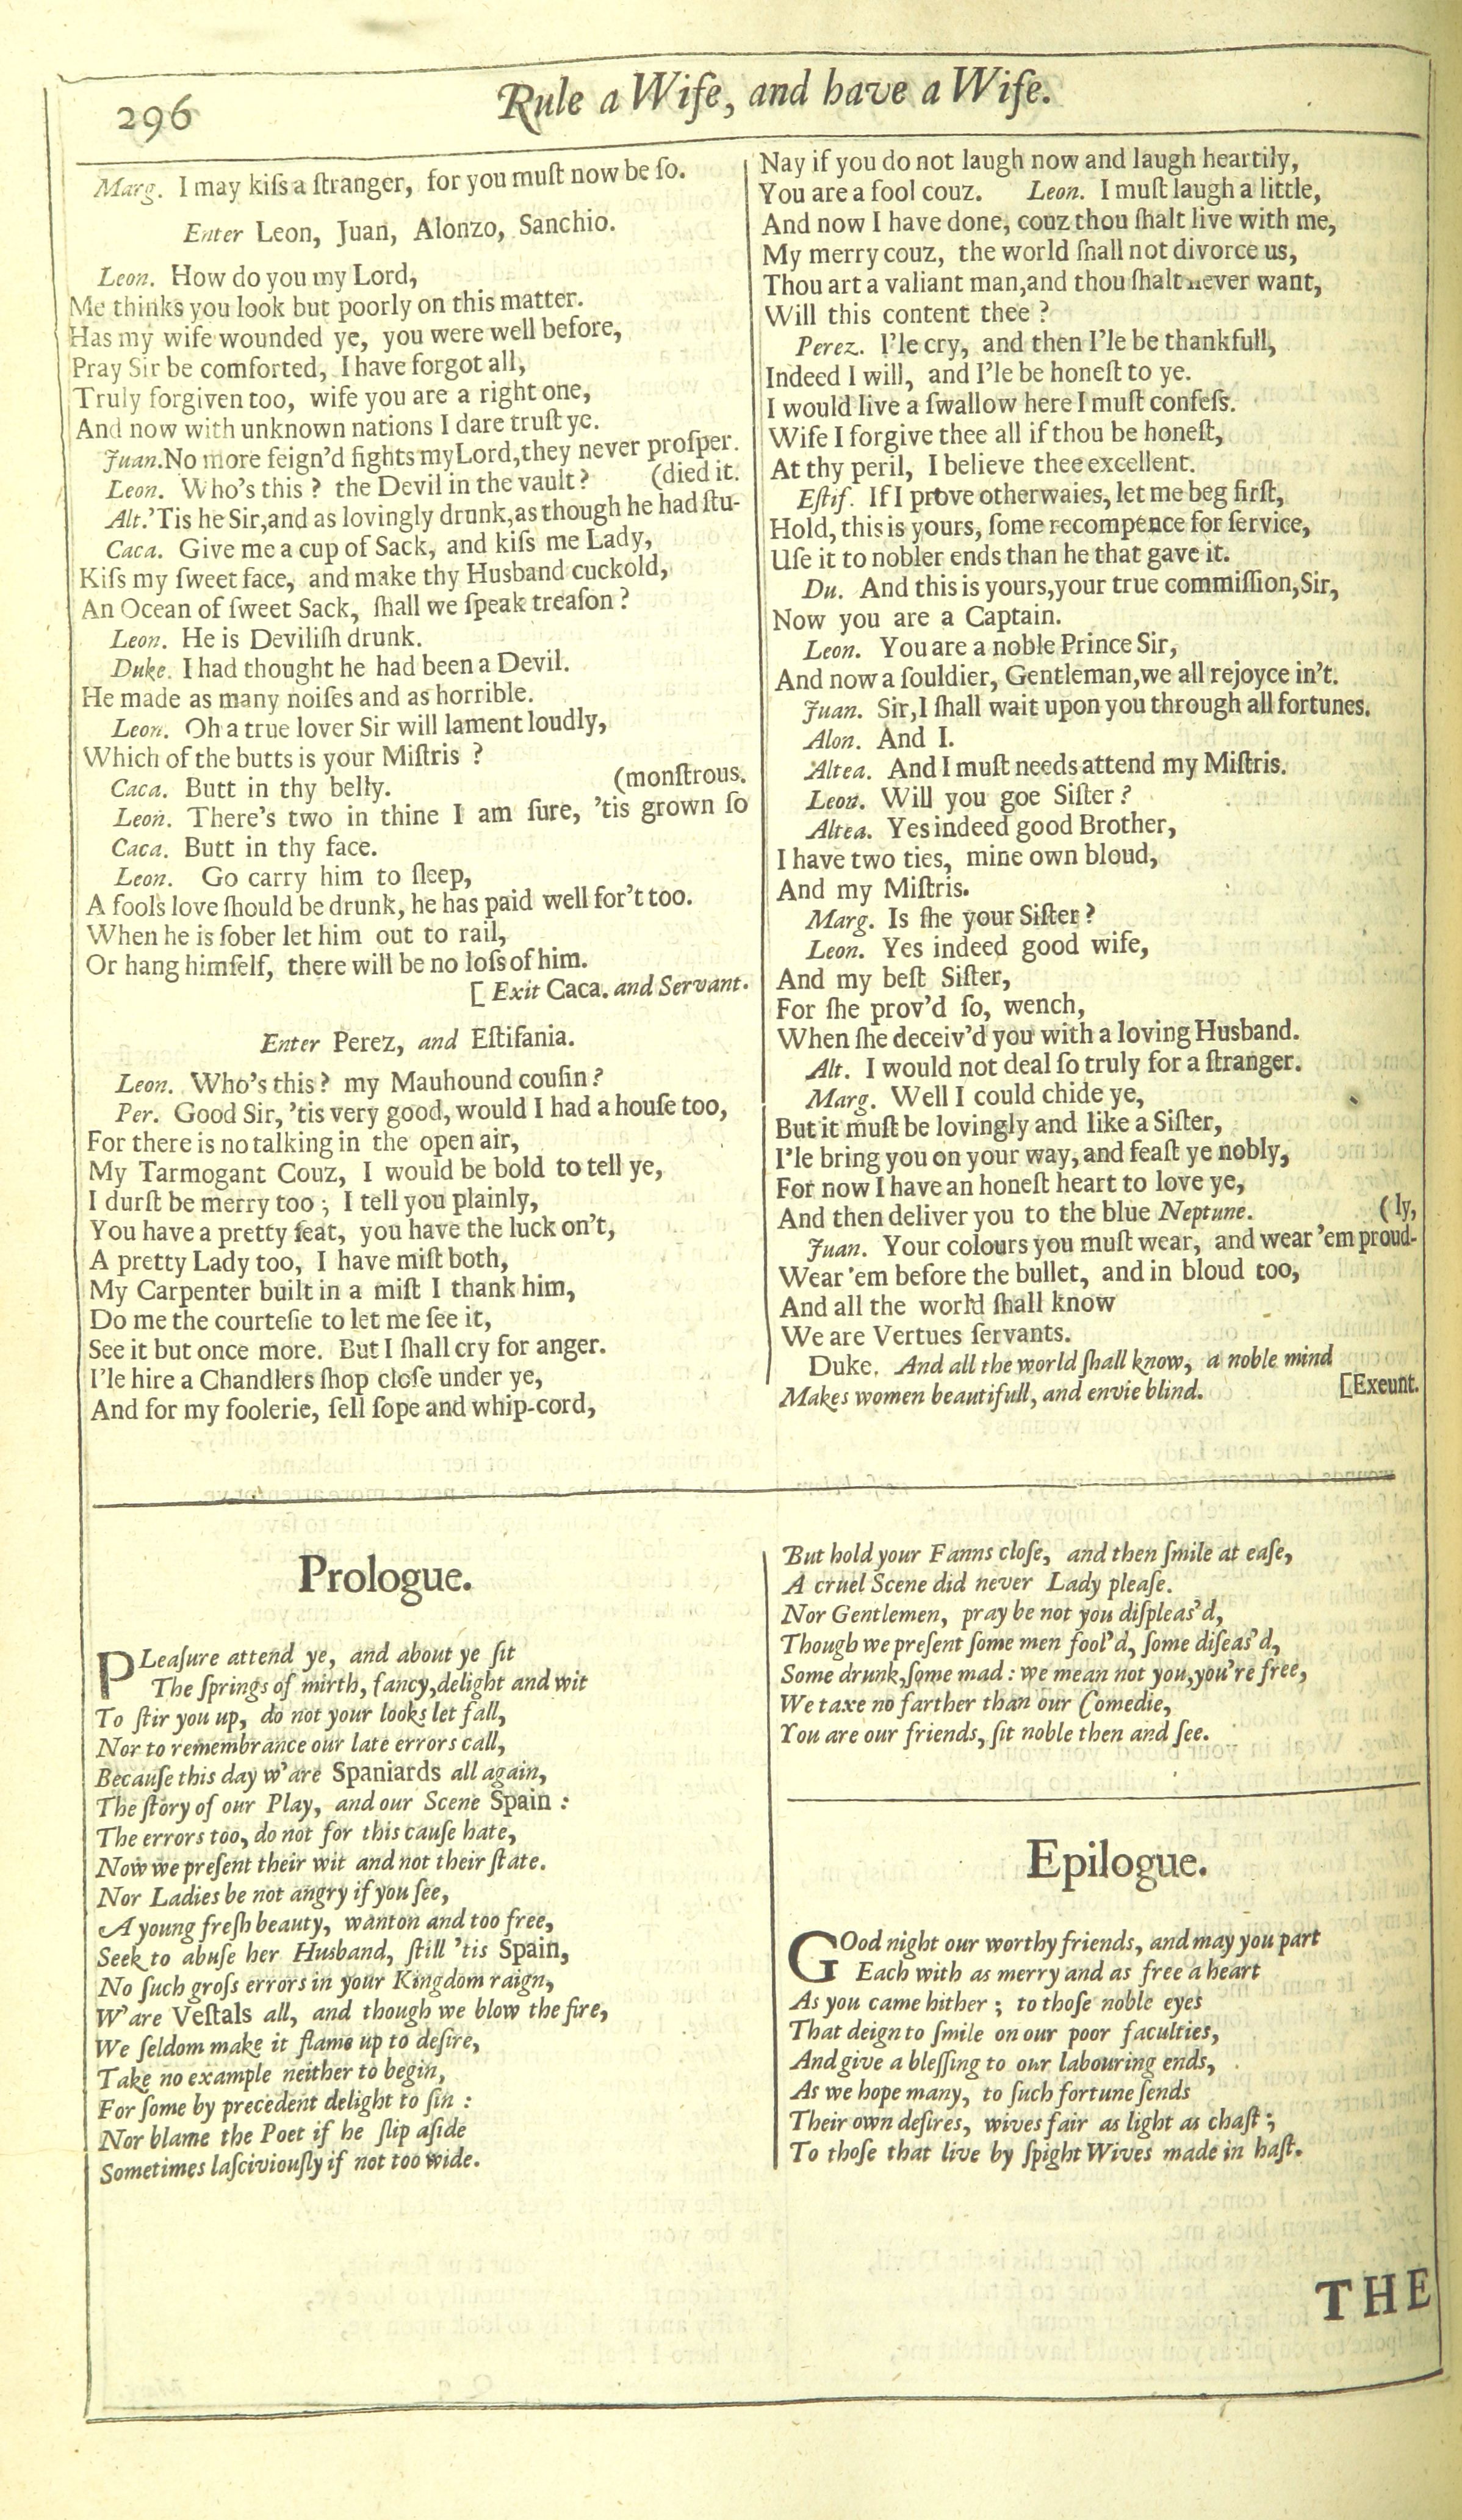 296
Rule a Wife, and have a Wife.
Marg. I may kiſs a ſtranger, for you muſt now be ſo.
Enter Leon, Juan, Alonzo, Sanchio.
Leon. How do you my Lord,
Me thinks you look but poorly on this matter.
Has my wife wounded ye, you were well before,
Pray Sir be comforted, I have forgot all,
Truly forgiven too, wife you are a right one,
And now with unknown nations I dare truſt ye.
Juan. No more feign'd fights my Lord, they never proſper.
Leon. Who's this ? the Devil in the vault ? (died it.
Alt. 'Tis he Sir, and as lovingly drunk, as though he had ſtu-
Caca. Give me a cup of Sack, and kiſs me Lady,
Kiſs my ſweet face, and make thy Husband cuckold,
An Ocean of ſweet Sack, ſhall we ſpeak treaſon ?
Leon. He is Deviliſh drunk.
Duke. I had thought he had been a Devil.
He made as many noiſes and as horrible.
Leon. Oh a true lover Sir will lament loudly,
Which of the butts is your Miſtris ?
Caca. Butt in thy belly. (monſtrous.
Leon. There's two in thine I am ſure, 'tis grown ſo
Caca. Butt in thy face.
Leon. Go carry him to ſleep,
A fools love ſhould be drunk, he has paid well for't too.
When he is ſober let him out to rail,
Or hang himſelf, there will be no loſs of him.
[ Exit Caca. and Servant.
Enter Perez, and Eſtifania.
Leon. Who's this ? my Mauhound couſin ?
Per. Good Sir, 'tis very good, would I had a houſe too,
For there is no talking in the open air,
My Tarmogant Couz, I would be bold to tell ye,
I durſt be merry too ; I tell you plainly,
You have a pretty ſeat, you have the luck on't,
A pretty Lady too, I have miſt both,
My Carpenter built in a miſt I thank him,
Do me the courteſie to let me ſee it,
See it but once more. But I ſhall cry for anger.
I'le hire a Chandlers ſhop cloſe under ye,
And for my foolerie, ſell ſope and whip-cord,
Nay if you do not laugh now and laugh heartily,
You are a fool couz. Leon. I muſt laugh a little,
And now I have done, couz thou ſhalt live with me,
My merry couz, the world ſhall not divorce us,
Thou art a valiant man, and thou ſhalt never want,
Will this content thee ?
Perez. I'le cry, and then I'le be thankfull,
Indeed I will, and I'le be honeſt to ye.
I would live a ſwallow here I muſt confeſs.
Wife I forgive thee all if thou be honeſt,
At thy peril, I believe thee excellent.
Eſtif. If I prove otherwaies, let me beg firſt,
Hold, this is yours, ſome recompence for ſervice,
Uſe it to nobler ends than he that gave it.
Du. And this is yours, your true commiſſion, Sir,
Now you are a Captain.
Leon. You are a noble Prince Sir,
And now a ſouldier, Gentleman, we all rejoyce in't.
Juan. Sir, I ſhall wait upon you through all fortunes.
Alon. And I.
Altea. And I muſt needs attend my Miſtris.
Leon. Will you goe Siſter ?
Altea. Yes indeed good Brother,
I have two ties, mine own bloud,
And my Miſtris.
Marg. Is ſhe your Siſter ?
Leon. Yes indeed good wife,
And my beſt Siſter,
For ſhe prov'd ſo, wench,
When ſhe deceiv'd you with a loving Husband.
Alt. I would not deal ſo truly for a ſtranger.
Marg. Well I could chide ye,
But it muſt be lovingly and like a Siſter,
I'le bring you on your way, and feaſt ye nobly,
For now I have an honeſt heart to love ye,
And then deliver you to the blue Neptune. (ly,
Juan. Your colours you muſt wear, and wear 'em proud-
Wear 'em before the bullet, and in bloud too,
And all the world ſhall know
We are Vertues ſervants.
Duke. And all the world ſhall know, a noble mind
Makes women beautifull, and envie blind. [Exeunt.
Prologue.
PLeaſure attend ye, and about ye ſit
The ſprings of mirth, fancy, delight and wit
To ſtir you up, do not your looks let fall,
Nor to remembrance our late errors call,
Becauſe this day w'are Spaniards all again,
The ſtory of our Play, and our Scene Spain :
The errors too, do not for this cauſe hate,
Now we preſent their wit and not their ſtate.
Nor Ladies be not angry if you ſee,
A young freſh beauty, wanton and too free,
Seek to abuſe her Husband, ſtill 'tis Spain,
No ſuch groſs errors in your Kingdom raign,
W'are Veſtals all, and though we blow the fire,
We ſeldom make it flame up to deſire,
Take no example neither to begin,
For ſome by precedent delight to ſin :
Nor blame the Poet if he ſlip aſide
Sometimes laſciviouſly if not too wide.
But hold your Fanns cloſe, and then ſmile at eaſe,
A cruel Scene did never Lady pleaſe.
Nor Gentlemen, pray be not you diſpleas'd,
Though we preſent ſome men fool'd, ſome diſeas'd,
Some drunk, ſome mad : we mean not you, you're free,
We taxe no farther than our Comedie,
You are our friends, ſit noble then and ſee.
Epilogue.
GOod night our worthy friends, and may you part
Each with as merry and as free a heart
As you came hither ; to thoſe noble eyes
That deign to ſmile on our poor faculties,
And give a bleſſing to our labouring ends,
As we hope many, to ſuch fortune ſends
Their own deſires, wives fair as light as chaſt ;
To thoſe that live by ſpight Wives made in haſt.
THE